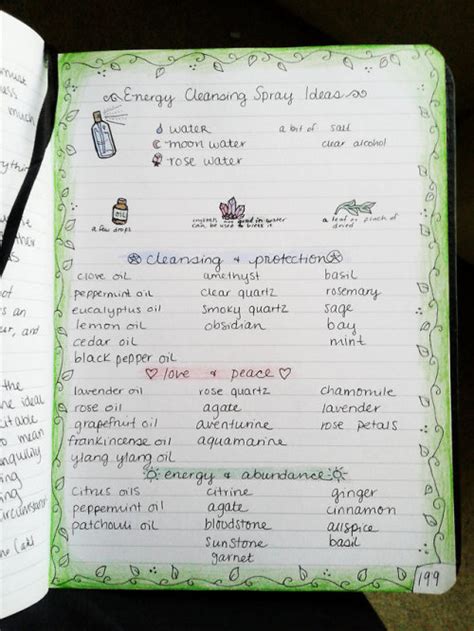 Energy Cleansing Spray Ideas
water a bit of salt
moon water clear alcohol
rose water
OIL
a few drops
crystals good in water
can be used & bless it
a leaf or pinch of
dried
cleansing & protection
clove oil amethyst basil
peppermint oil clear quartz rosemary
eucalyptus oil smoky quartz sage
lemon oil obsidian bay
cedar oil mint
black pepper oil
love & peace
lavender oil rose quartz chamomile
rose oil agate lavender
grapefruit oil aventurine rose petals
frankincense oil aquamarine
ylang ylang oil
energy & abundance
citrus oils citrine ginger
peppermint oil agate cinnamon
patchouli oil bloodstone allspice
sunstone basil
garnet
199
must
much
the
of
s an
er, and
the
ideal
to mean